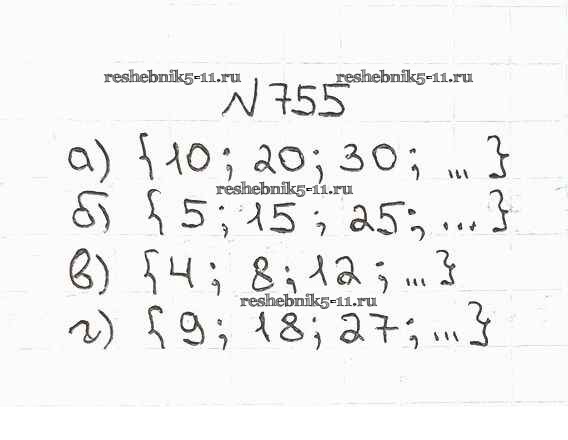 reshebnik5-11.ru reshebnik5-11.ru
№755
а) {10; 20; 30; ...}
reshebnik5-11.ru
б) {5; 15; 25; ...}
в) {4; 8; 12; ...}
reshebnik5-11.ru
г) {9; 18; 27; ...}